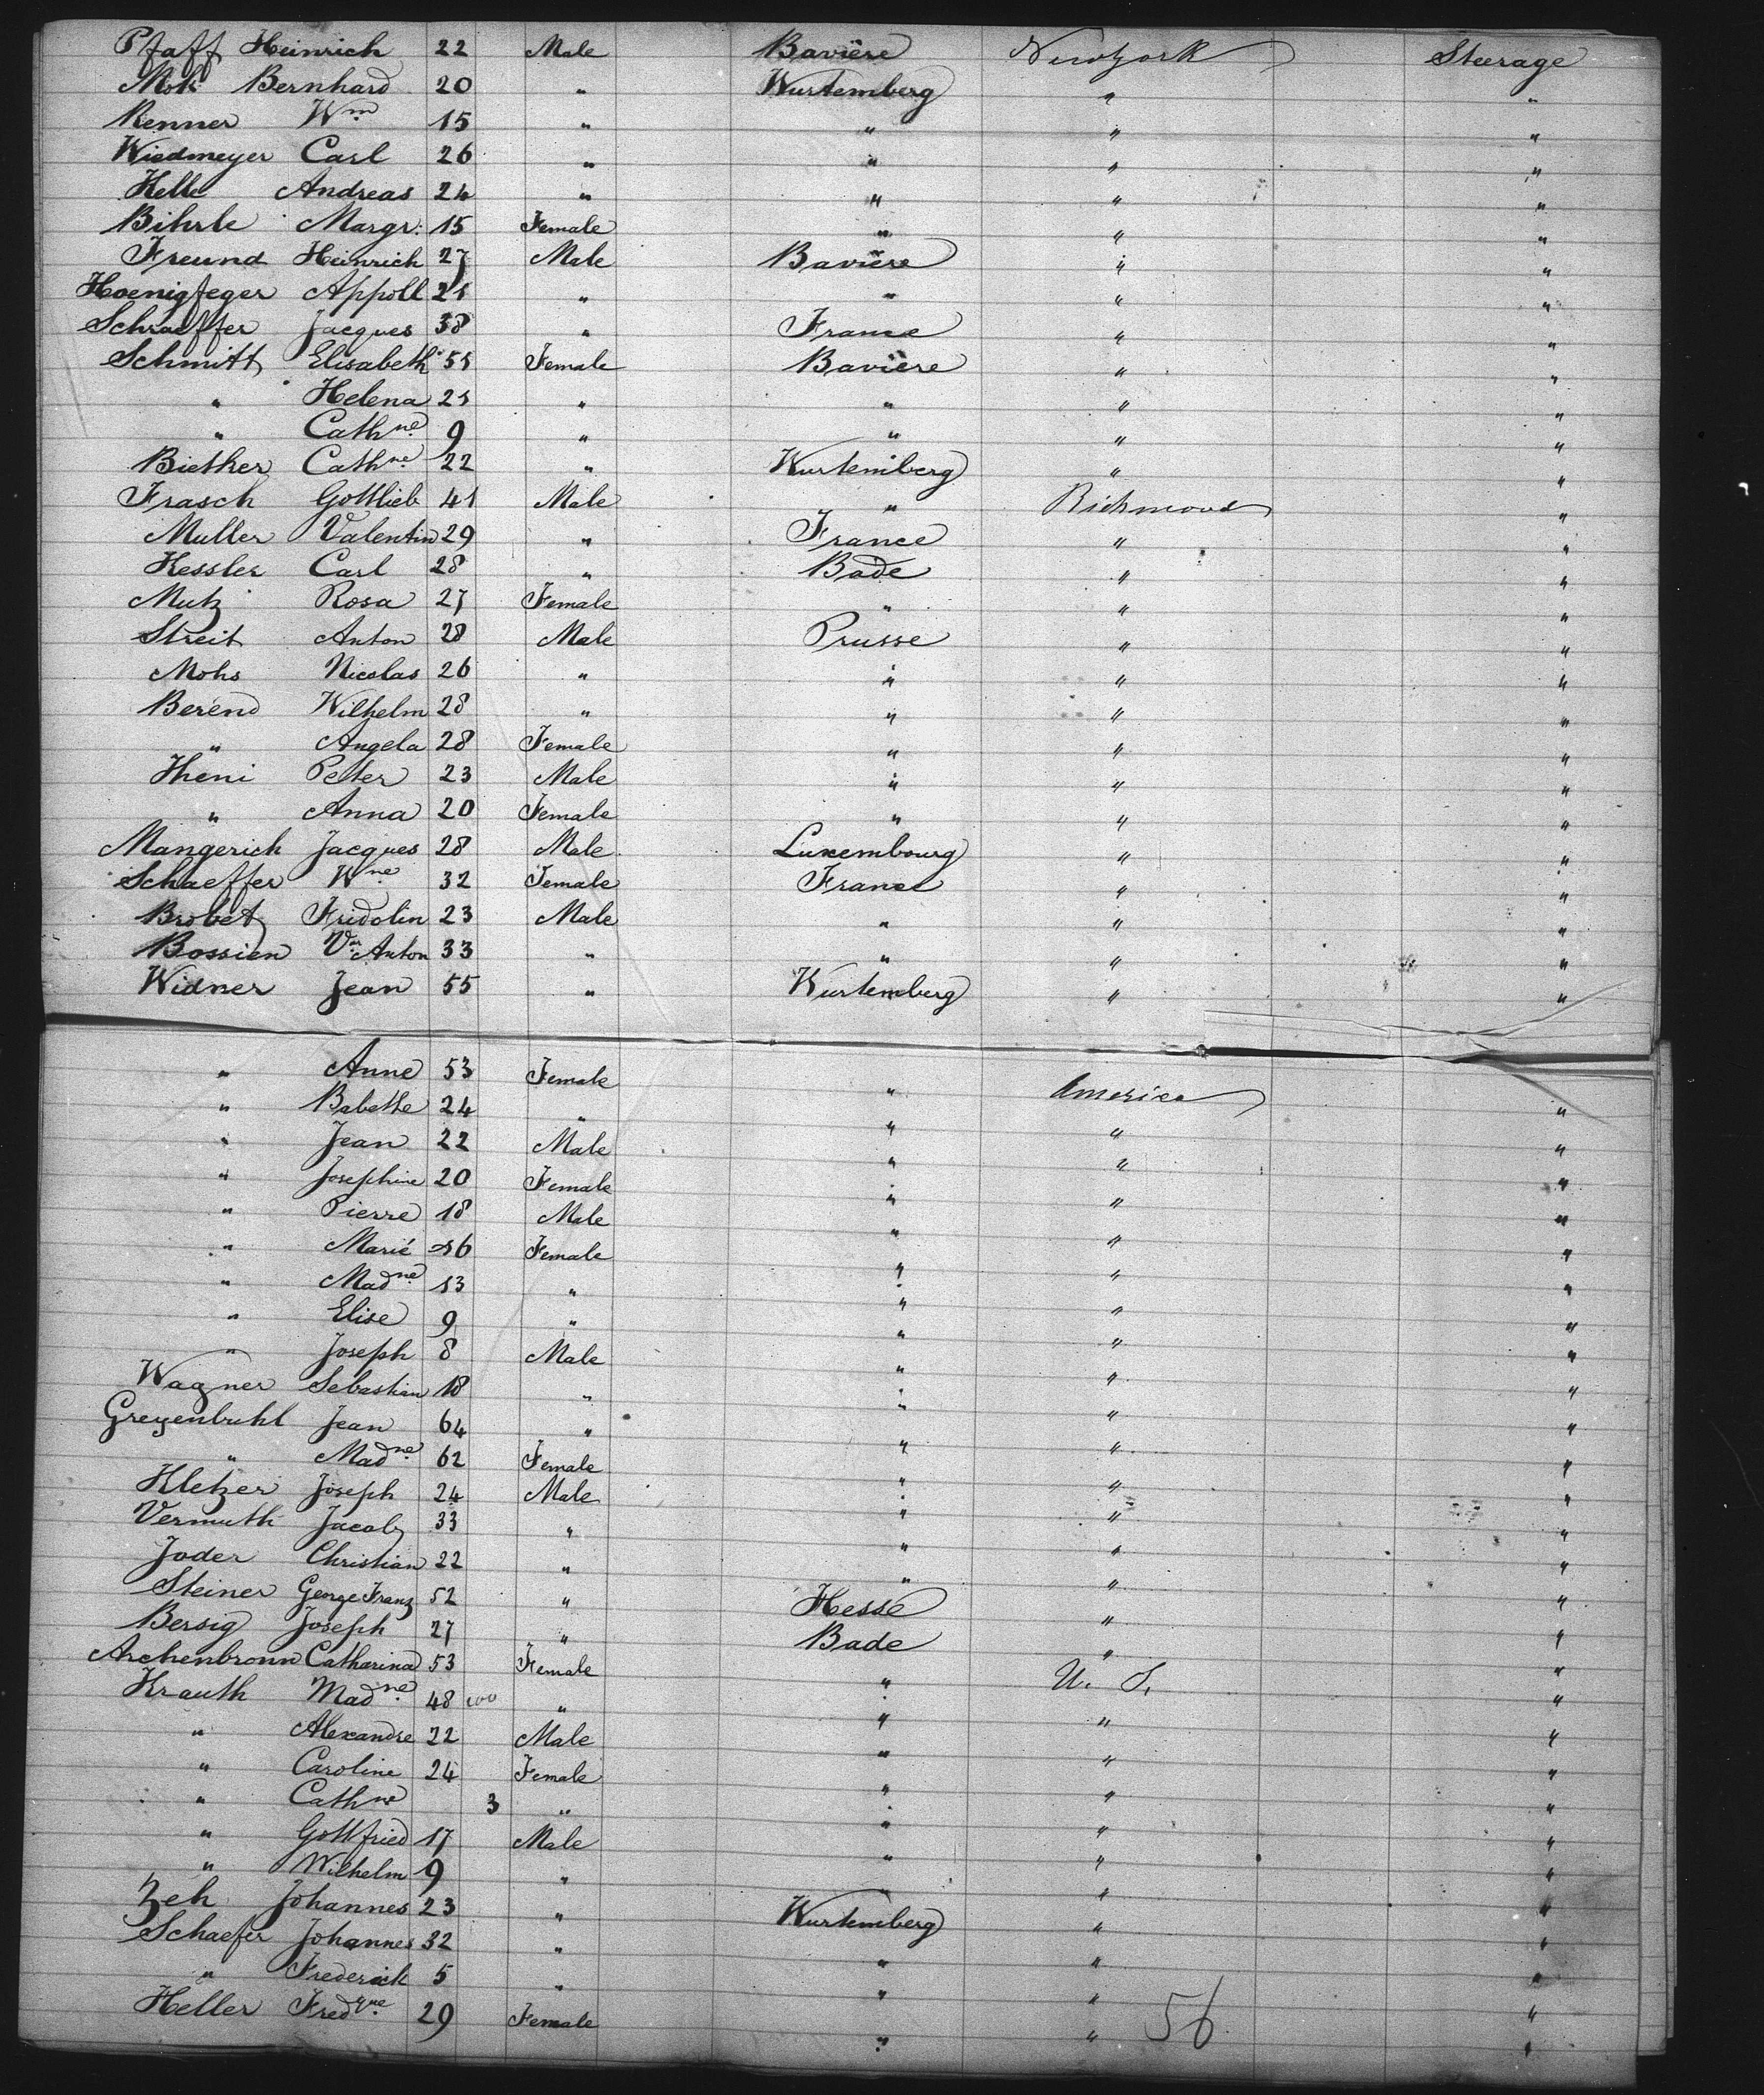 Pfaff Heinrich 22 Male Bavière Newyork Steerage
Mok Bernhard 20 " Wurtemberg " "
Renner Wm 15 " " " "
Wiedmeyer Carl 26 " " " "
Helle Andreas 24 " " " "
Bihrle Margr: 15 Female " " "
Freund Heinrich 27 Male Bavière " "
Hoenigfeger Appoll 21 " " " "
Schraeffer Jacques 38 " France " "
Schmitt Elisabeth 51 Female Bavière " "
" Helena 21 " " " "
" Cathne 9 " " " "
Biether Cathne 22 " Wurtemberg " "
Frasch Gottlieb 41 Male " Richmond "
Muller Valentin 29 " France " "
Kessler Carl 28 " Bade " "
Mutz Rosa 27 Female " " "
Streit Anton 28 Male Prusse " "
Mohs Nicolas 26 " " " "
Berend Wilhelm 28 " " " "
" Angela 28 Female " " "
Theni Peter 23 Male " " "
" Anna 20 Female " " "
Mangerich Jacques 28 Male Luxembourg " "
Schaeffer Wne 32 Female France " "
Brobet Fridolin 23 Male " " "
Bossien Vr Anton 33 " " " "
Widner Jean 55 " Wurtemberg " "
" Anne 53 Female " America "
" Babette 24 " " " "
" Jean 22 Male " " "
" Josephine 20 Female " " "
" Pierre 18 Male " " "
" Marie 16 Female " " "
" Madne 13 " " " "
" Elise 9 " " " "
" Joseph 8 Male " " "
Wagner Sebastian 18 " " " "
Greyenbuhl Jean 64 " " " "
" Madne 62 Female " " "
Kletzer Joseph 24 Male " " "
Vermuth Jacob 33 " " " "
Joder Christian 22 " " " "
Steiner George Franz 52 " Hesse " "
Bersig Joseph 27 " Bade " "
Archenbronn Catharina 53 Female " U. S. "
Krauth Madne 48 " " " "
" Alexandre 22 Male " " "
" Caroline 24 Female " " "
" Cathne 3 " " " "
" Gottfried 17 Male " " "
" Wilhelm 9 " " " "
Zeh Johannes 23 " Wurtemberg " "
Schaefer Johannes 32 " " " "
" Frederick 5 " " " "
Heller Fredque 29 Female " " "
56